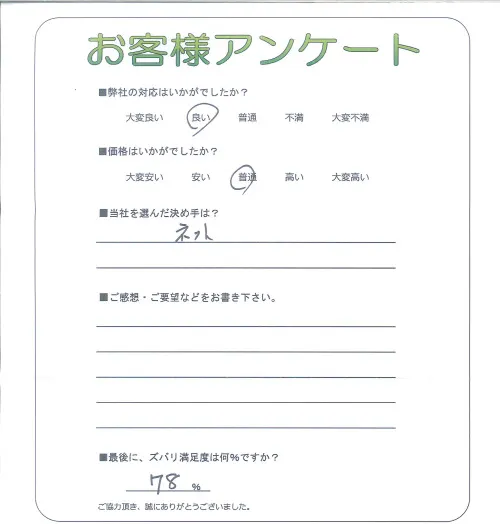 お客様アンケート
■弊社の対応はいかがでしたか？
大変良い 良い 普通 不満 大変不満
■価格はいかがでしたか？
大変安い 安い 普通 高い 大変高い
■当社を選んだ決め手は？
ネット
■ご感想・ご要望などをお書き下さい。
■最後に、ズバリ満足度は何%ですか？
78 %
ご協力頂き、誠にありがとうございました。